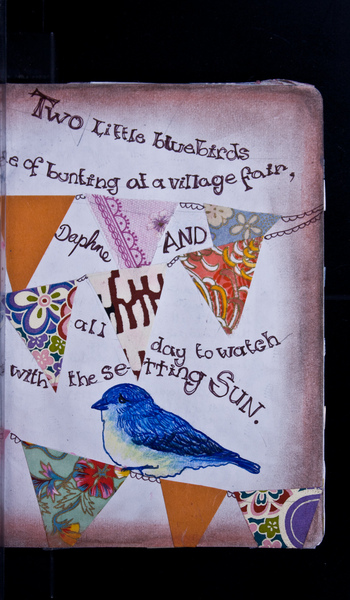 Two little bluebirds
e of bunting at a village fair,
Daphne AND
all day to watch
with the setting SUN.